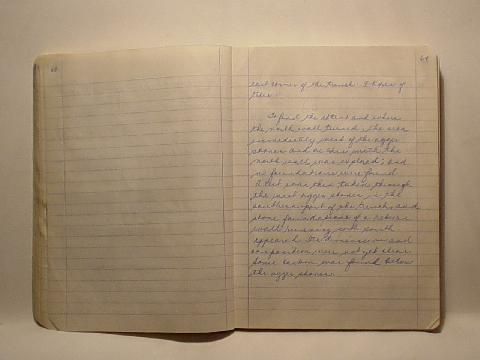 60
61
east corner of the trench. of
tiles.
To find the extent and where
the north wall turned, the area
immediately west of the agger
stones and in line with the
north wall was explored; and
no foundations were found.
A test was then taken through
the west agger stones in the
southern part of the trench, and
stone foundations of a
wall running north south
appeared. Its dimensions and
composition were not yet clear.
Some carbon was found below
the agger stones.